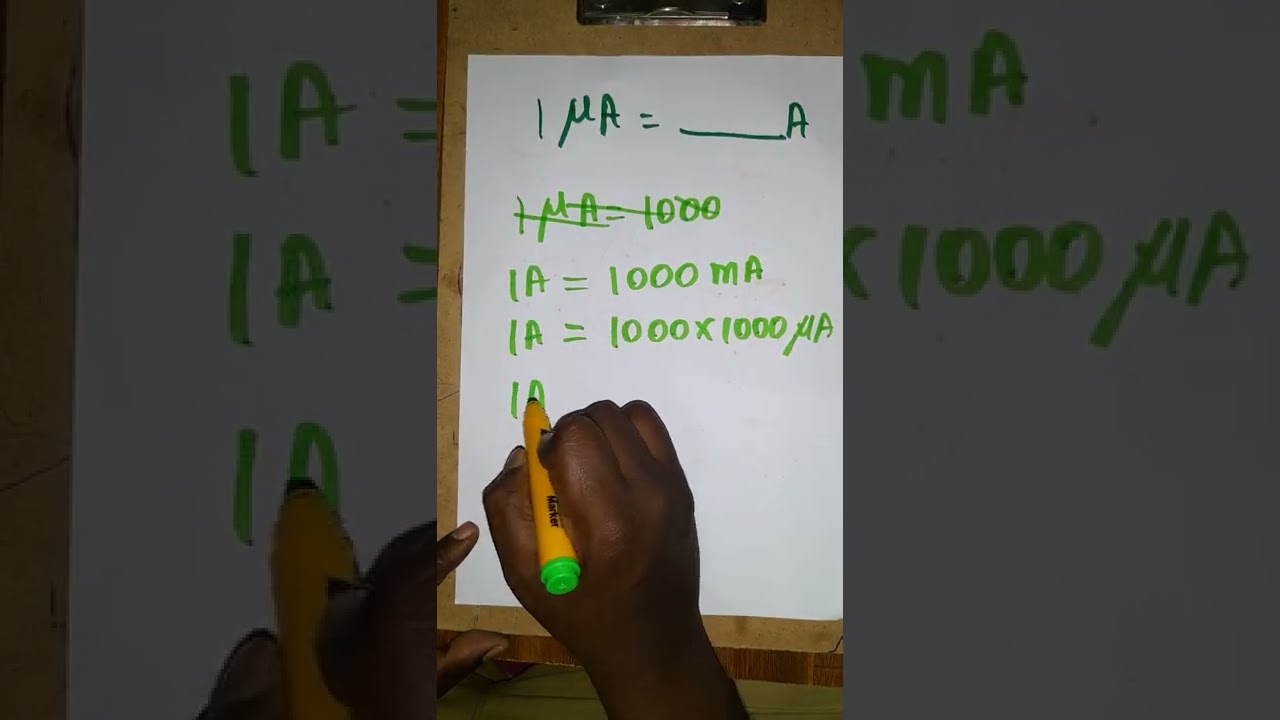 1 μA = ____A
1 μA = 1000
1A = 1000 mA
1A = 1000 x 1000 μA
1A
Marker